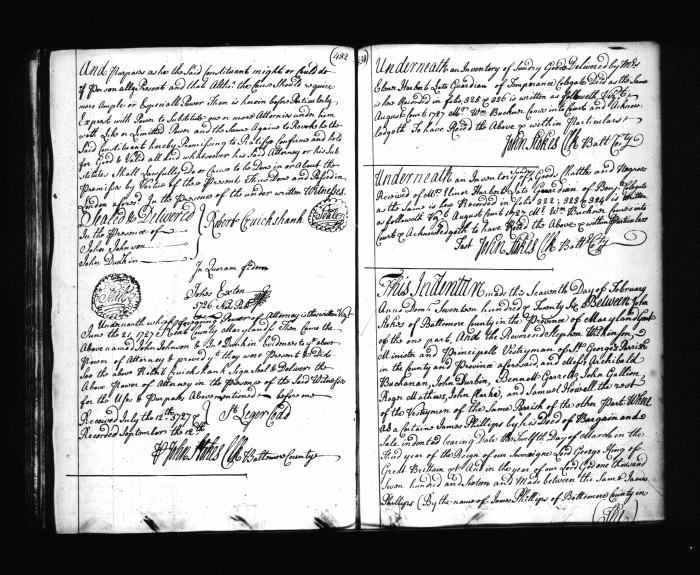 482
And Purposes as he the Said Constituent might or Could do
if Personally Present and that Altho: the Cause Should require
more Ample or Especiall Power Than is herein before Particularly
Exprest with Power to Substitute one or more Attornies under him
with Like or Limitted Power and the Same Again to Revoke he the
Said Constituent hereby Promising to Ratify Confirm and hold
for Good & Valid all and whatsoever his Said Attorney or his Sub
stitutes Shall Lawfully do or Cause to be Done in or About the
Premises by Virtue of these Presents Thus Done and Passed in
London afores.d In the Presence of the under written Witnesses.
Sealed & Delivered
In the Presence of
John Johnson
John Dunkin
Robert Cruickshank
Seale
In Quoram fidem
Johes Exton
1726 Not. Pub.
Seale
Underneath which foregoing Power of Attorney is thus written Viz.t
June the 21 1727 Kent County Maryland Then Came the
Above named John Johnson &
Power of Attorney & proved y.t they were Present & Did
See the above Rob.t Cruickshank Sign Seal & Deliver the
Above Power of Attorney in the Presence of the Said Witnesses
for the Use & Purposes Above mentioned before me
Received July the 12th 1727 &
Recorded September the 12th
St Leger Codd
P John Stokes Clk Baltimore County
Underneath an Inventory of Sundry Goods Delivered by M.rs
Late Guardian of Temperance Colegate Dec.d as the Same
is here Recorded in folio 325 & 326 is written as followeth Viz.t
August Court 1727 M.r W.m Buckner Comes into Court and Acknow
ledgeth To have Rec.d the Above & within Particulars
John Stokes Clk Balt C.ty
Underneath an Inventory of Sundry Goods Chattles and Negroes
Received of Late Guardian of
as the Same is here Recorded in folio 322; 323 & 324 is written
as followeth Viz.t August Court 1727 M.r W.m Buckner Comes into
Court & Acknowledgeth to have Rec.d the Above & within Particulars
Test John Stokes Clk Balt C.ty
This Indenture made the Seaventh Day of February
Anno Dom.i Seventeen hundred & Twenty Six Between John
Stokes of Baltemore County in the Province of Maryland
of the one part, And the Reverend Stephen Wilkinson
Minister and Principall Vestryman of St. Georges Parish
in the County and Province aforesaid, and Mess.rs Archibald
Buchanan, John Durbin, Bennett Garrett, John Gallion,
Roger Mathews, John Clarke, and Samuel Howell the rest
of the Vestrymen of the Same Parish of the other Part Where
as a Certaine James Phillips by his Deed of Bargain and
Sale indented bearing date the Twelfth Day of March in the
third year of the Reign of our Sovereigne Lord George King of
Great Brittain &c. And in the year of our Lord God one thousand
Seven hundred and Sixteen and Made between the Same James
Phillips (By the name of James Phillips of Baltimore County in